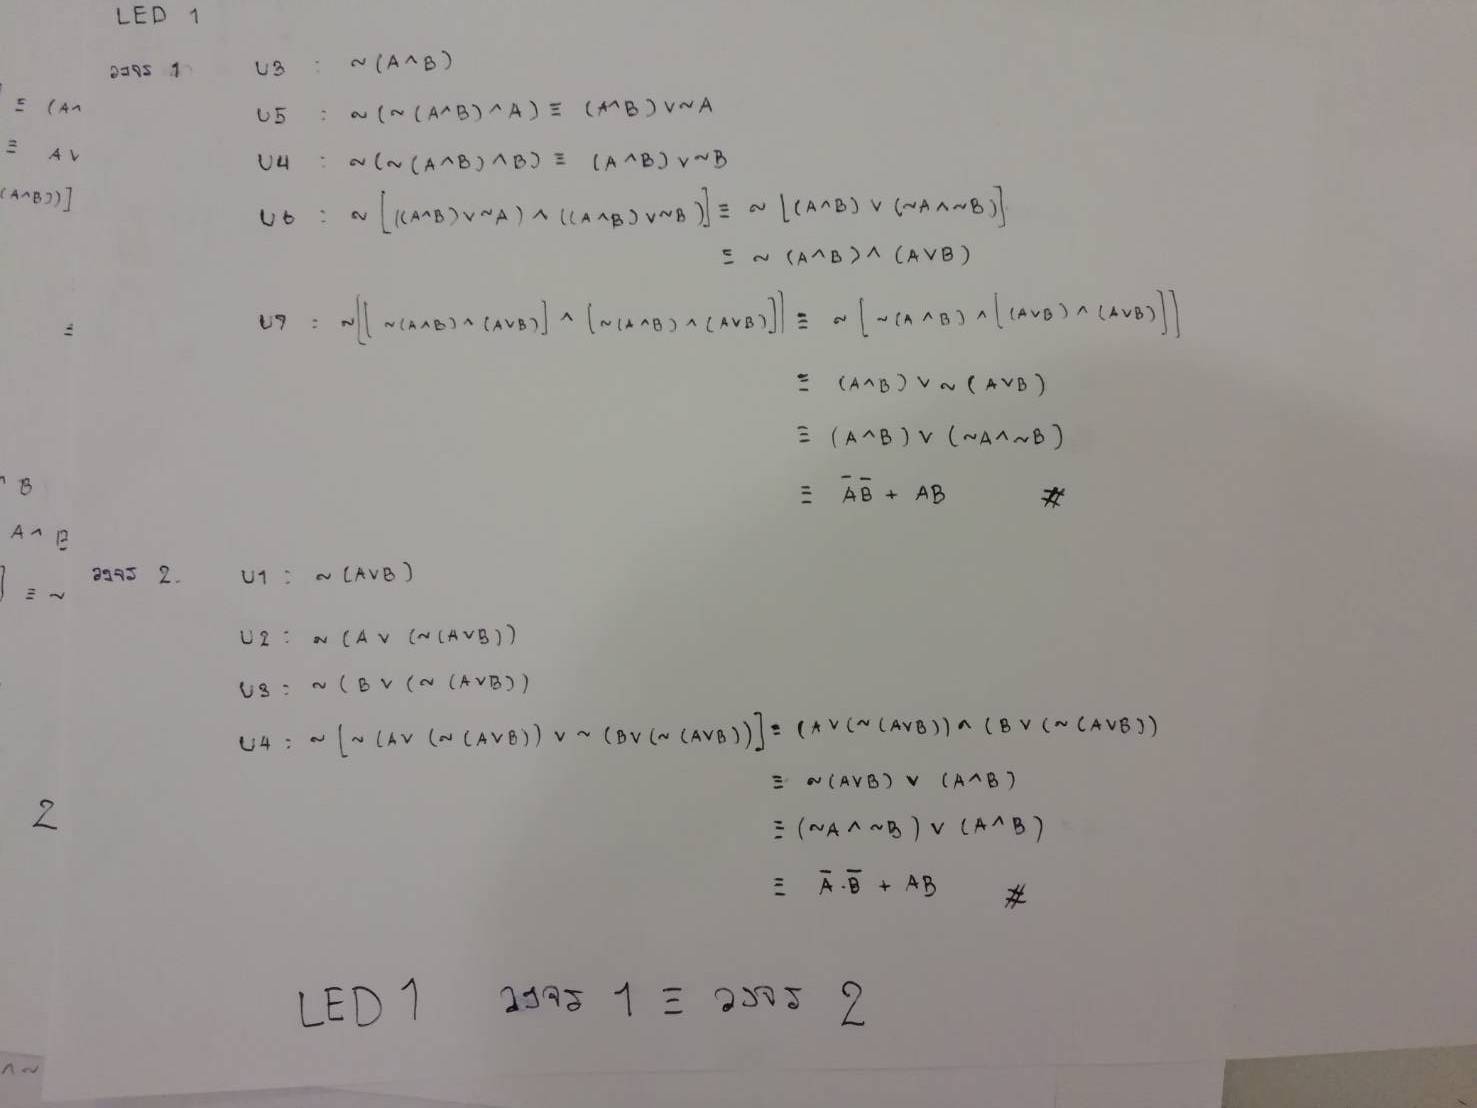 LED 1
วงจร 1 U3 : ~(A^B)
U5 : ~(~(A^B)^A) ≡ (A^B)v~A
U4 : ~(~(A^B)^B) ≡ (A^B)v~B
U6 : ~[((A^B)v~A)^((A^B)v~B)] ≡ ~[(A^B)v(~A^~B)]
≡ ~(A^B)^(AvB)
U7 : ~[[~(A^B)^(AvB)]^[~(A^B)^(AvB)]] ≡ ~[~(A^B)^[(AvB)^(AvB)]]
≡ (A^B)v~(AvB)
≡ (A^B)v(~A^~B)
≡ A̅B̅ + AB #
วงจร 2. U1 : ~(AvB)
U2 : ~(Av(~(AvB))
U3 : ~(Bv(~(AvB))
U4 : ~[~(Av(~(AvB))v~(Bv(~(AvB))] ≡ (Av(~(AvB))^(Bv(~(AvB))
≡ ~(AvB)v(A^B)
≡ (~A^~B)v(A^B)
≡ A̅·B̅ + AB #
LED 1 วงจร 1 ≡ วงจร 2
≡ (A^
≡ Av
(A^B))]
≡
^B
A^B
] ≡ ~
2
^~